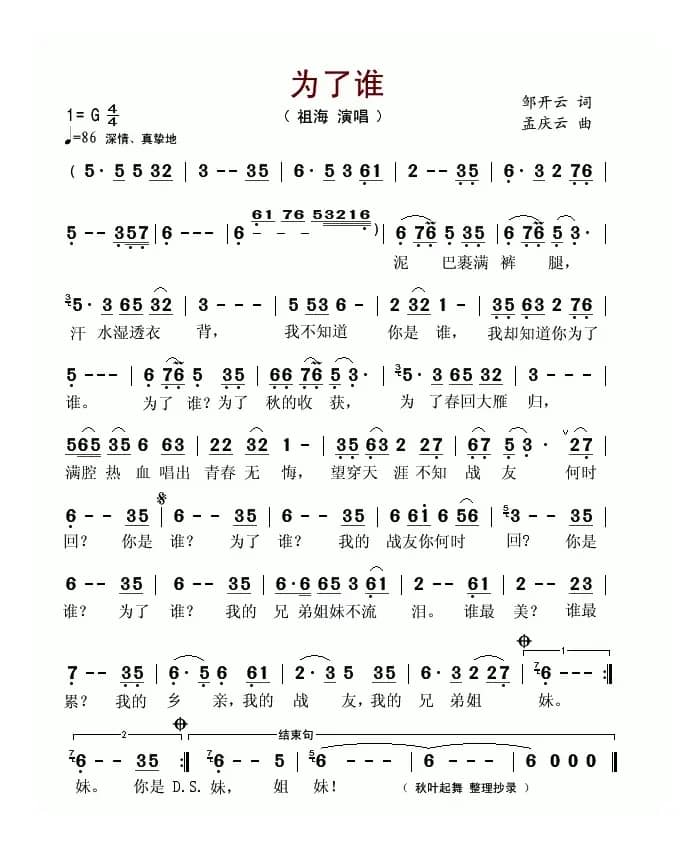 为了谁
1= G 4/4
（ 祖海 演唱 ）
邹开云 词
孟庆云 曲
♩=86 深情、真挚地
( 5· 5 5 32 | 3 - - 35 | 6· 5 3 61 | 2 - - 35 | 6· 3 2 76 |
5 - - 357 | 6 - - - | 6 - - - 61 76 53216 ) | 6 76 5 35 | 6 76 5 3· |
泥 巴裹满 裤 腿，
3 5· 3 65 32 | 3 - - - | 5 53 6 - | 2 32 1 - | 35 63 2 76 |
汗 水湿透衣 背， 我不知道 你是 谁， 我却知道你为了
5 - - - | 6 76 5 35 | 66 76 5 3· | 3 5· 3 65 32 | 3 - - - |
谁。 为了 谁？为了 秋的收 获， 为 了春回大雁 归，
565 35 6 63 | 22 32 1 - | 35 63 2 27 | 67 5 3· ∨ 27 |
满腔 热 血 唱出 青春 无 悔， 望穿天 涯 不知 战 友 何时
6 - - 35 | 6 - - 35 | 6 - - 35 | 6 61 6 56 | 5 3 - - 35 |
回？ 你是 谁？ 为了 谁？ 我的 战友你何时 回? 你是
6 - - 35 | 6 - - 35 | 6·6 65 3 61 | 2 - - 61 | 2 - - 23 |
谁？ 为了 谁？ 我的 兄 弟姐妹不流 泪。 谁最 美？谁最
7 - - 35 | 6· 5 6 61 | 2· 3 5 35 | 6· 3 2 27 | 1 7 6 - - - :||
累？ 我的 乡 亲，我的 战 友，我的 兄 弟姐 妹。
2 结束句
7 6 - - 35 :|| 7 6 - - 5 | 5 6 - - - | 6 - - - | 6 0 0 0 ||
妹。 你是 D.S. 妹， 姐 妹！ （ 秋叶起舞 整理抄录 ）